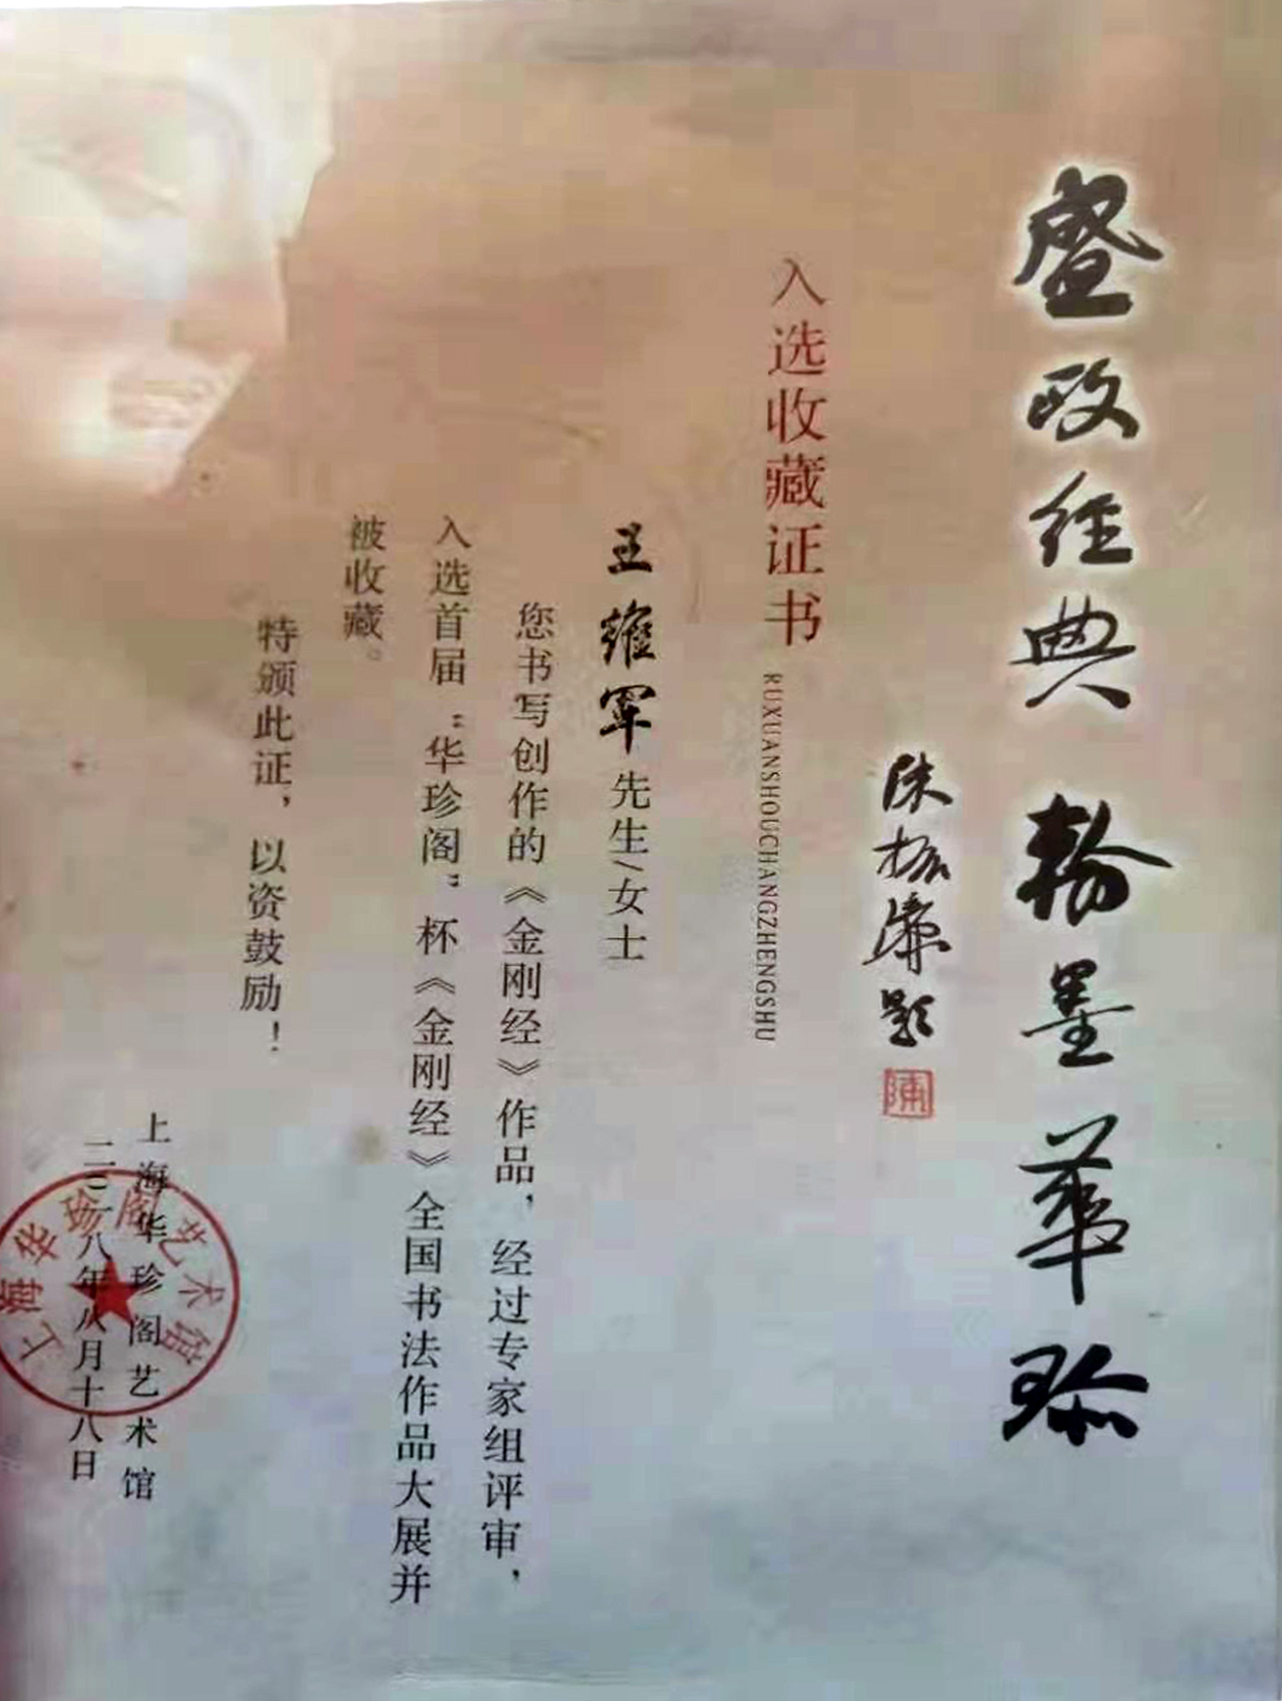 盛政经典 翰墨華珍
陈振濂题
陳
入选收藏证书 RUXUANSHOUCHANGZHENGSHU
王维军先生/女士
您书写创作的《金刚经》作品，经过专家组评审，
入选首届“华珍阁”杯《金刚经》全国书法作品大展并
被收藏。
特颁此证，以资鼓励！
上海华珍阁艺术馆
二〇一八年八月十八日
上海华珍阁艺术馆